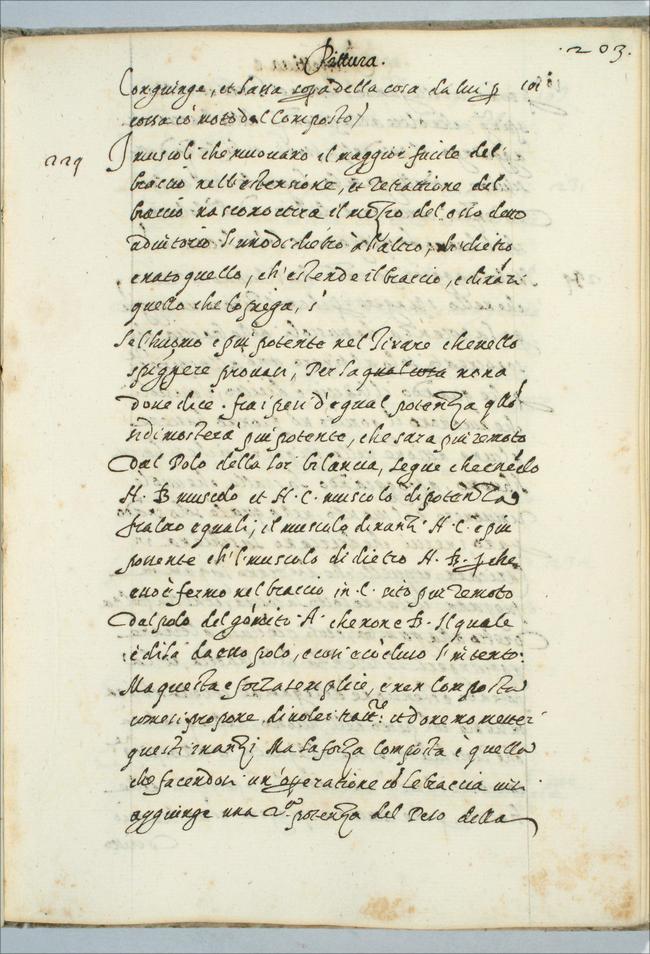 Pittura.
.203.
Congiunge, et lassa copia della cosa da lui p
cossa co moto del Composto)
229
I muscoli che muovano il maggior fucile del
braccio nell'estensione, et retrattione del
braccio nascono circa il mezzo del osso detto
adiutorio l'uno di dietro à l'altro; di dietro
è nato quello, ch'estende il braccio, e dinanzi
quello che lo piega,
Se l'huomo è più potente nel tirare che nello
spignere provasi, Per la qual cosa nona
donde dice. fra i pesi d'equal potenza q̃llo
si dimosterà più potente, che sarà più remoto
dal Polo della lor bilancia, segue che essendo
N. B. muscolo et N. C. muscolo di potenza
fra loro equali; il muscolo dinanzi N. C. è più
potente ch'l muscolo di dietro N. B. p che
esso è fermo nel braccio in C. sito più remoto
dal polo del gomito A. che non è B. Il quale
è di là da esso polo, e così è co͂cluso l'intento.
Ma questa è forza semplice, e non Composta
come si propone di voler trattare: et dovemo metter
questi inanzi Ma la forza Composta è quella
che facendosi un'operatione co͂ le braccia vi si
aggiunge una 2.ª potenza del Peso della